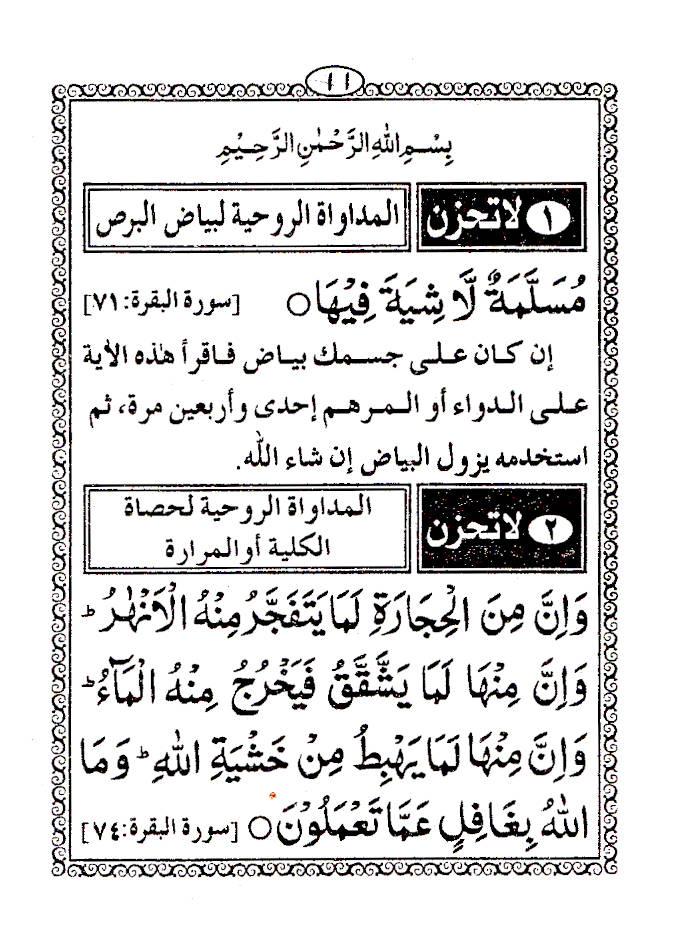 ١١
بِسْمِ اللهِ الرَّحْمٰنِ الرَّحِيْمِ
١ لا تحزن المداواة الروحية لبياض البرص
مُسَلَّمَةٌ لَّا شِيَةَ فِيْهَا ○ [سورة البقرة: ٧١]
إن كان على جسمك بياض فاقرأ هذه الأية
على الدواء أو المرهم إحدى وأربعين مرة، ثم
استخدمه يزول البياض إن شاء الله.
٢ لا تحزن المداواة الروحية لحصاة
الكلية أو المرارة
وَاِنَّ مِنَ الْحِجَارَةِ لَمَا يَتَفَجَّرُ مِنْهُ الْاَنْهٰرُ ؕ
وَاِنَّ مِنْهَا لَمَا يَشَّقَّقُ فَيَخْرُجُ مِنْهُ الْمَآءُ ؕ
وَاِنَّ مِنْهَا لَمَا يَهْبِطُ مِنْ خَشْيَةِ اللهِ ؕ وَمَا
اللهُ بِغَافِلٍ عَمَّا تَعْمَلُوْنَ ○ [سورة البقرة: ٧٤]